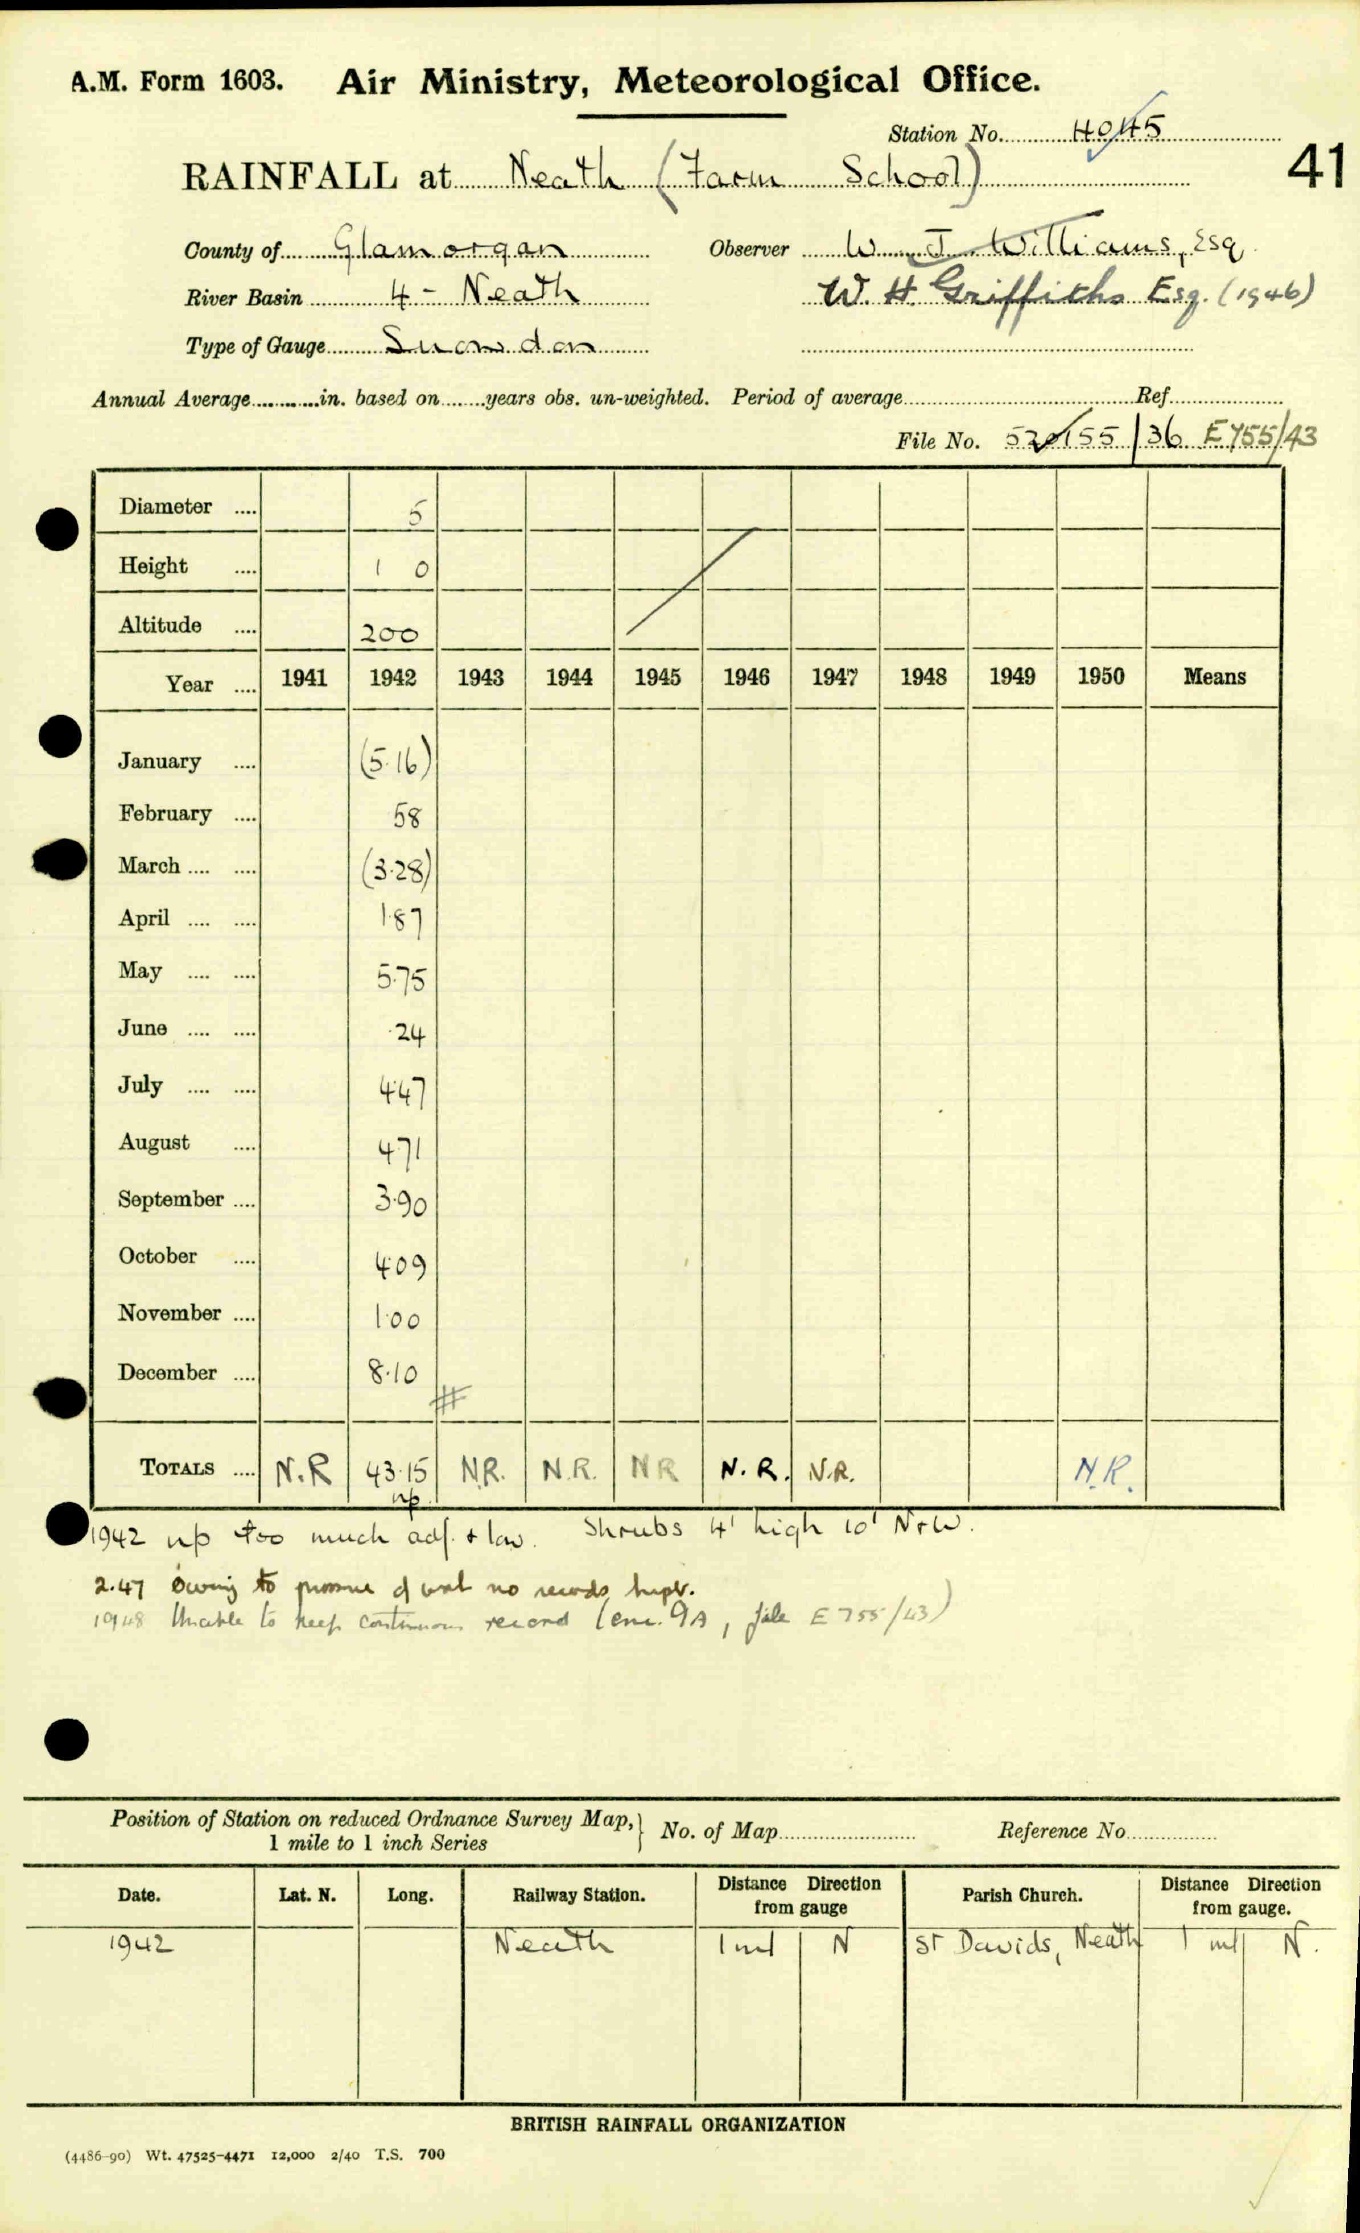 A.M. Form 1603. Air Ministry, Meteorological Office.
Station No. 4045
41
RAINFALL at Neath (Farm School)
County of Glamorgan Observer W. J. Williams, Esq.
River Basin 4 - Neath W. H. Griffiths Esq. (1946)
Type of Gauge Snowdon
Annual Average in. based on years obs. un-weighted. Period of average Ref.
File No. 520155/36 E755/43
Diameter .... 5
Height .... 1 0
Altitude .... 200
Year .... 1941 1942 1943 1944 1945 1946 1947 1948 1949 1950 Means
January .... (5.16)
February .... 58
March .... .... (3.28)
April .... .... 1.87
May .... .... 5.75
June .... .... .24
July .... .... 4.47
August .... 4.71
September .... 3.90
October .... 4.09
November .... 1.00
December .... 8.10
#
TOTALS .... N.R 43.15 N.R. N.R. N R N.R. N.R. N.R.
np
1942 np too much adj. + low. Shrubs 4' high 10' N+W.
2.47 Owing to of no records kept.
1948 Unable to keep continuous record (enc. 9A, file E755/43)
Position of Station on reduced Ordnance Survey Map, 1 mile to 1 inch Series } No. of Map Reference No.
Date. Lat. N. Long. Railway Station. Distance Direction from gauge Parish Church. Distance Direction from gauge.
1942 Neath 1 ml N St Davids, Neath 1 ml N.
BRITISH RAINFALL ORGANIZATION
(4486-90) Wt. 47525-4471 12,000 2/40 T.S. 700